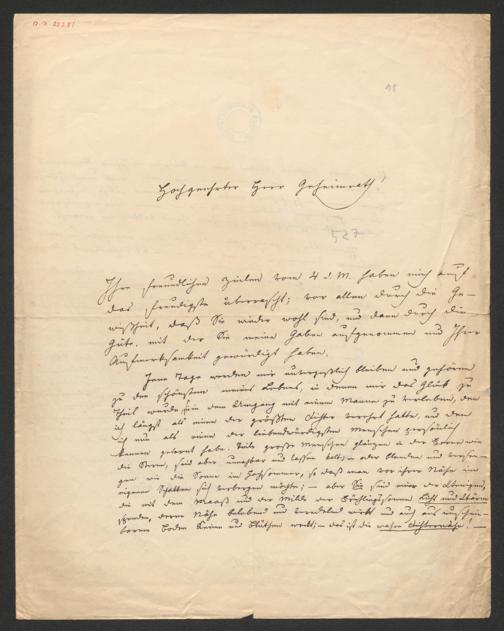 D.-N. 22281
98
Hochgeehrter Herr Geheimrath!
527
Ihre freundlichen Zeilen vom 4 d. M. haben mich auf
das Freudigste überrascht; vor allem durch die Ge-
wißheit, daß Sie wieder wohl sind, und dann durch die
Güte, mit der Sie meine Gaben aufgenommen und Ihrer
Aufmerksamkeit gewürdigt haben.
Jene Tage werden mir unvergeßlich bleiben und gehören
zu den schönsten meines Lebens, in denen mir das Glück zu
Theil wurde, in dem Umgang mit einem Manne zu verleben, den
ich längst als einen der größten Dichter verehrt hatte, und den
ich nun als einen der liebenswürdigsten Menschen persönlich
kennen gelernt habe. Viele große Menschen glänzen in der Ferne wie
die Sterne, sind aber unnahbar und lassen kalt; – oder blenden und versen-
gen wie die Sonne im Hochsommer, so daß man vor ihrer Nähe im
eigenen Schatten sich verbergen möchte; – aber Sie sind einer der Wenigen,
die mit dem Maaß und der Milde der Frühlingssonne Licht und Wärme
spenden, deren Nähe belebend und veredelnd wirkt und auch aus unschein-
barem Boden Keime und Blüthen weckt; – das ist die wahre Dichternähe! –